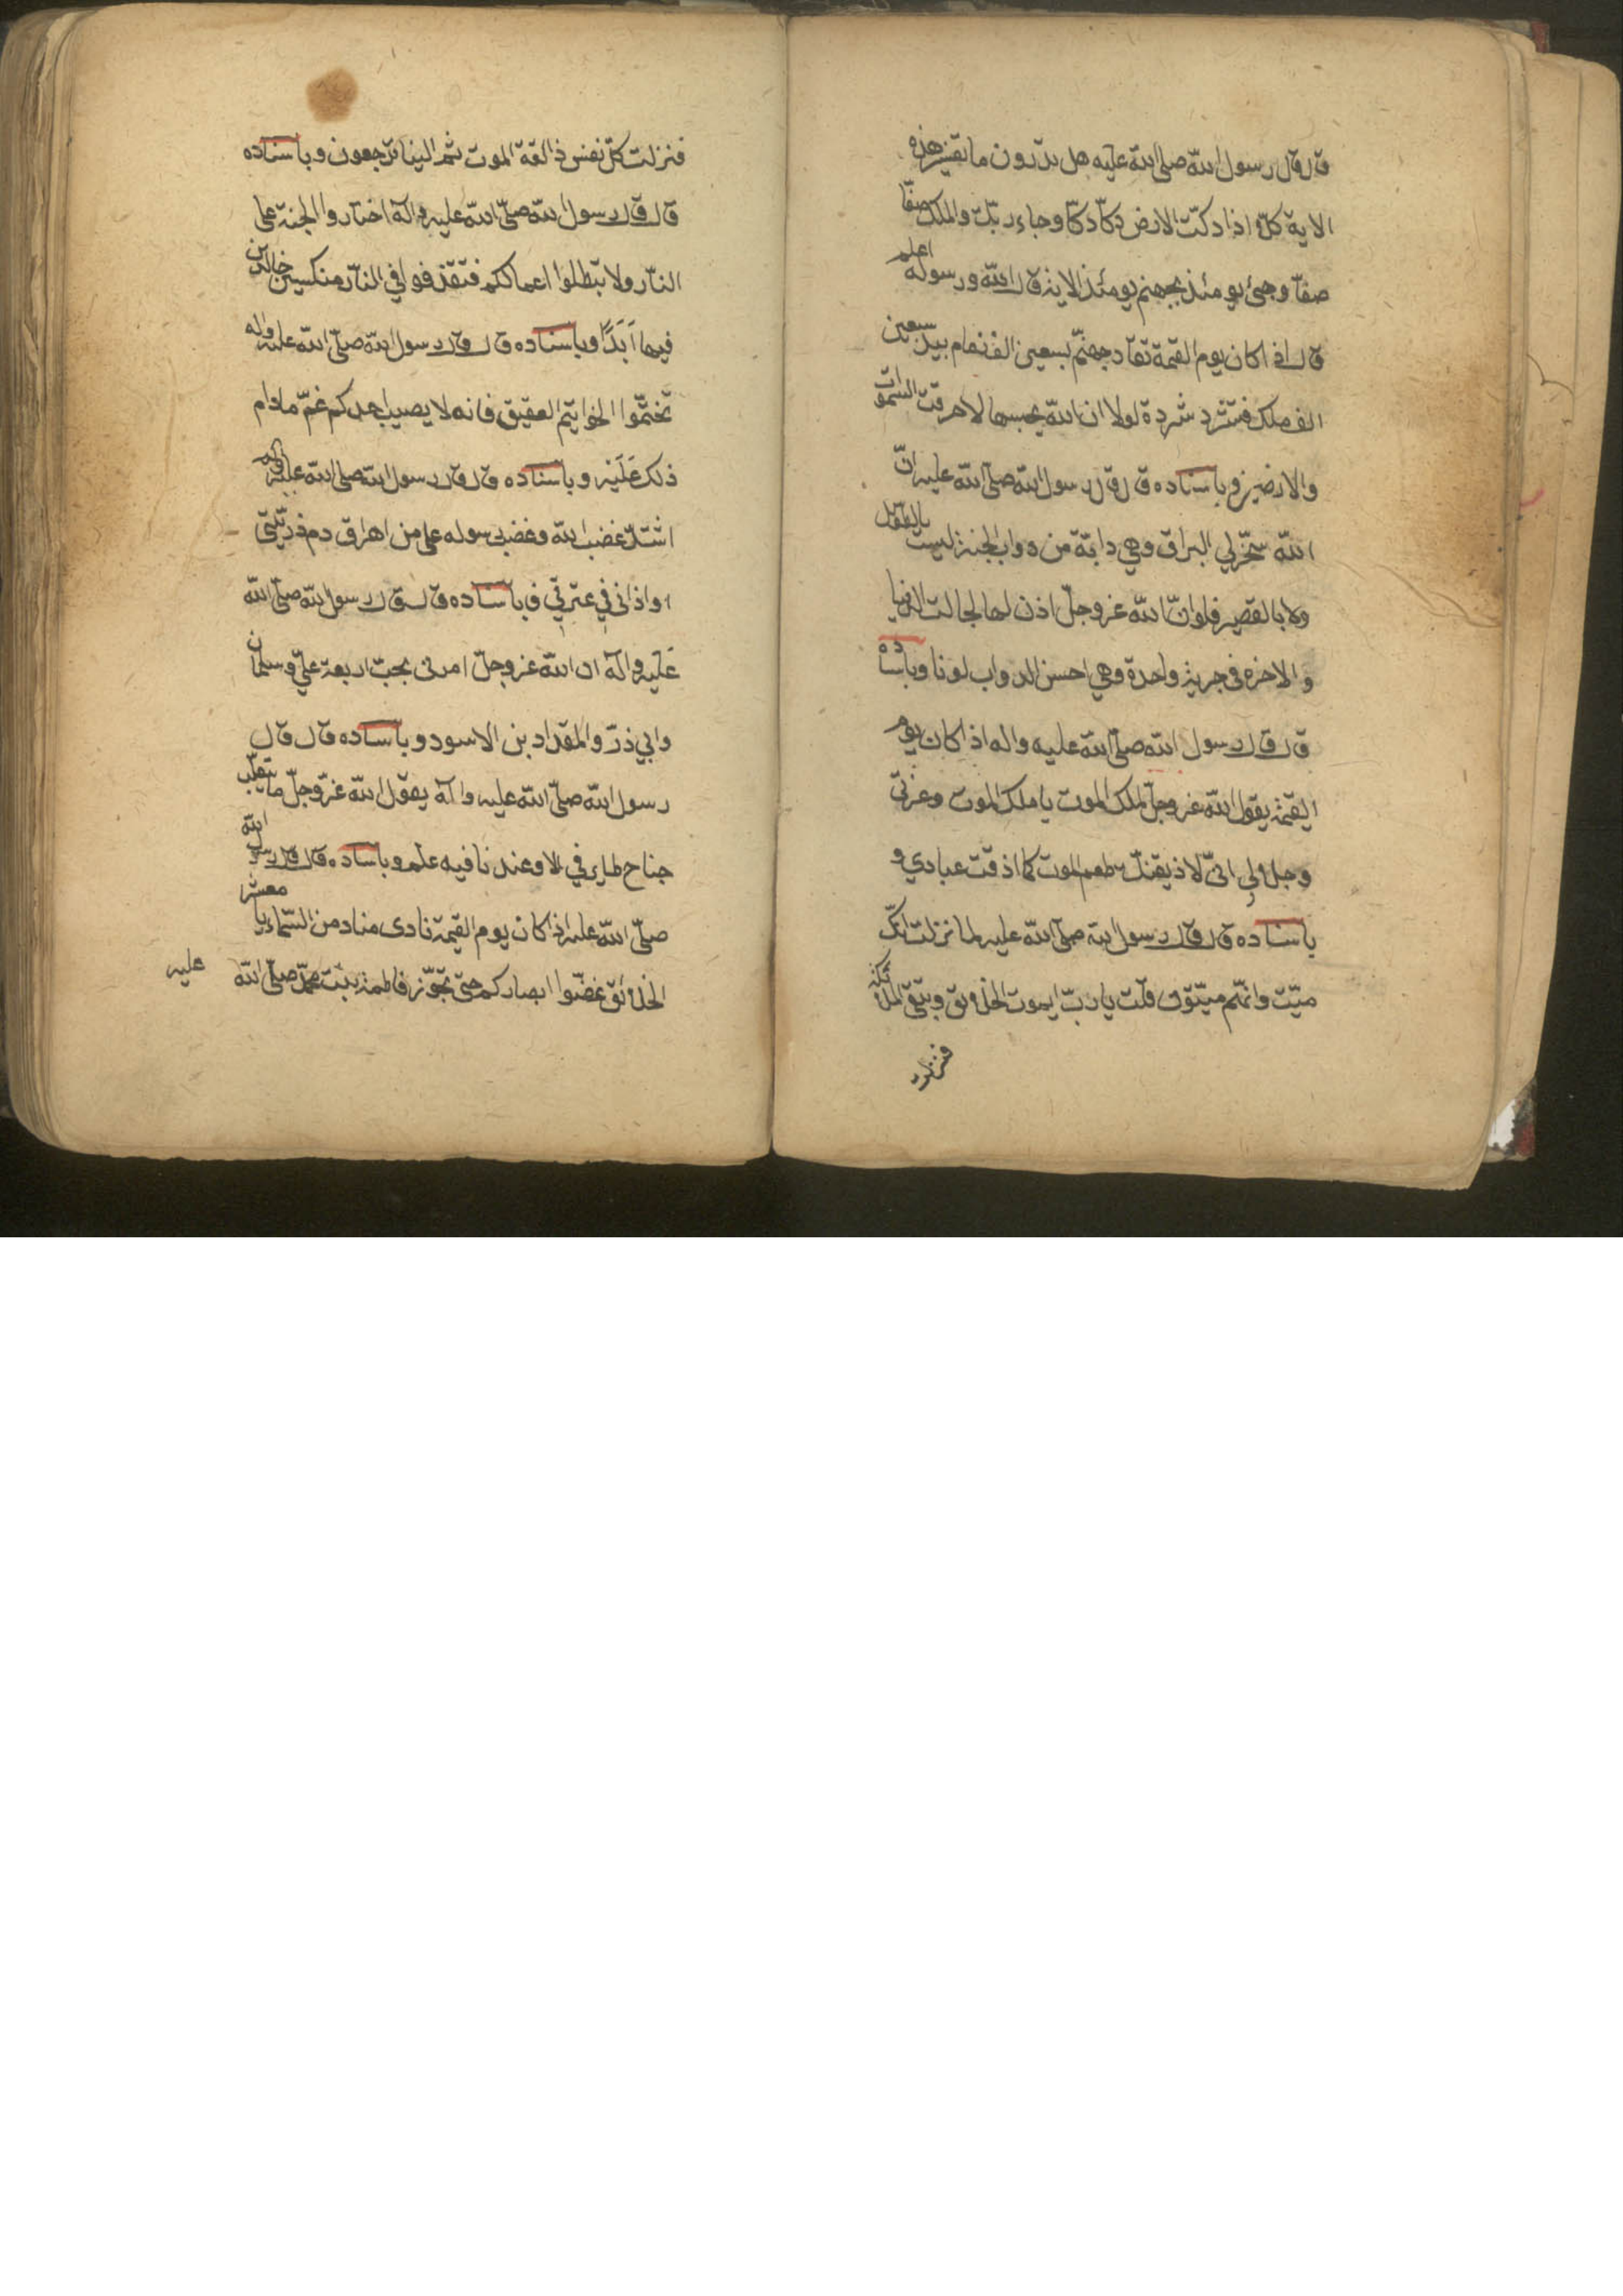 قال قال رسول الله صلى الله عليه هل تدرون ما تفسير هذه
الاية كلا اذا دكّت الارض دكّا دكّا وجاء ربّك والملك صفّا
صفّا وجئ يومئذ بجهنم يومئذ الاية قال الله ورسوله اعلم
قال اذا كان يوم القيمة تقاد جهنّم بسبعين الف زمام بيد سبعين
الف ملك فتشرد شردة لولا ان الله يحبسها لاحرقت السموات
والارضين وباسناده قال قال رسول الله صلّى الله عليه انّ
الله سخّر لي البراق وهي دابّة من دواب الجنة ليست بالطويل
ولا بالقصير فلو انّ الله عز وجلّ اذن لها لجالت الدنيا
والاخرة في جرية واحدة وهي احسن الدواب لونا وباسناده
قال قال رسول الله صلّى الله عليه واله اذا كان يوم
القيمة يقول الله عز وجلّ لملك الموت يا ملك الموت وعزتي
وجلالي انّي لاذيقنّك طعم الموت كما اذقت عبادي و
باسناده قال قال رسول الله صلى الله عليه لما نزلت انّك
ميّت وانّهم ميّتون قلت يا ربّ ايموت الخلائق ويبقى الملائكة
فنزلت
فنزلت كلّ نفس ذائقة الموت ثم الينا ترجعون وباسناده
قال قال رسول الله صلّى الله عليه واله اختاروا الجنة على
النّار ولا تبطلوا اعمالكم فتقذفوا في النّار منكسين خالدين
فيها اَبَدًا وباسناده قال قال رسول الله صلّى الله عليه واله
تختّموا الخواتيم العقيق فانه لا يصيب احدكم غمّ مادام
ذلك عَلَيْه وباسناده قال قال رسول الله صلى الله عليه واله
اشتدّ غضب الله وغضب رسوله على من اهراق دم ذريّتي
او اذاني في عترتي وباسناده قال قال رسول الله صلّى الله
عَليه واله ان الله عز وجلّ امرني بحبّ اربعة عليّ وسلمان
وابي ذرّ والمقداد بن الاسود وباسناده قال قال
رسول الله صلّى الله عليه واله يقول الله عزّ وجلّ ما ينقلب
جناح طاير في الا وعندنا فيه علم وباسناده قال قال رسول الله
صلّى الله عليه اذا كان يوم القيمة نادى مناد من السّماء يا معشر
الخلائق غضّوا ابصاركم حتى تجوّز فاطمة بنت محمّد صلّى الله
عليه